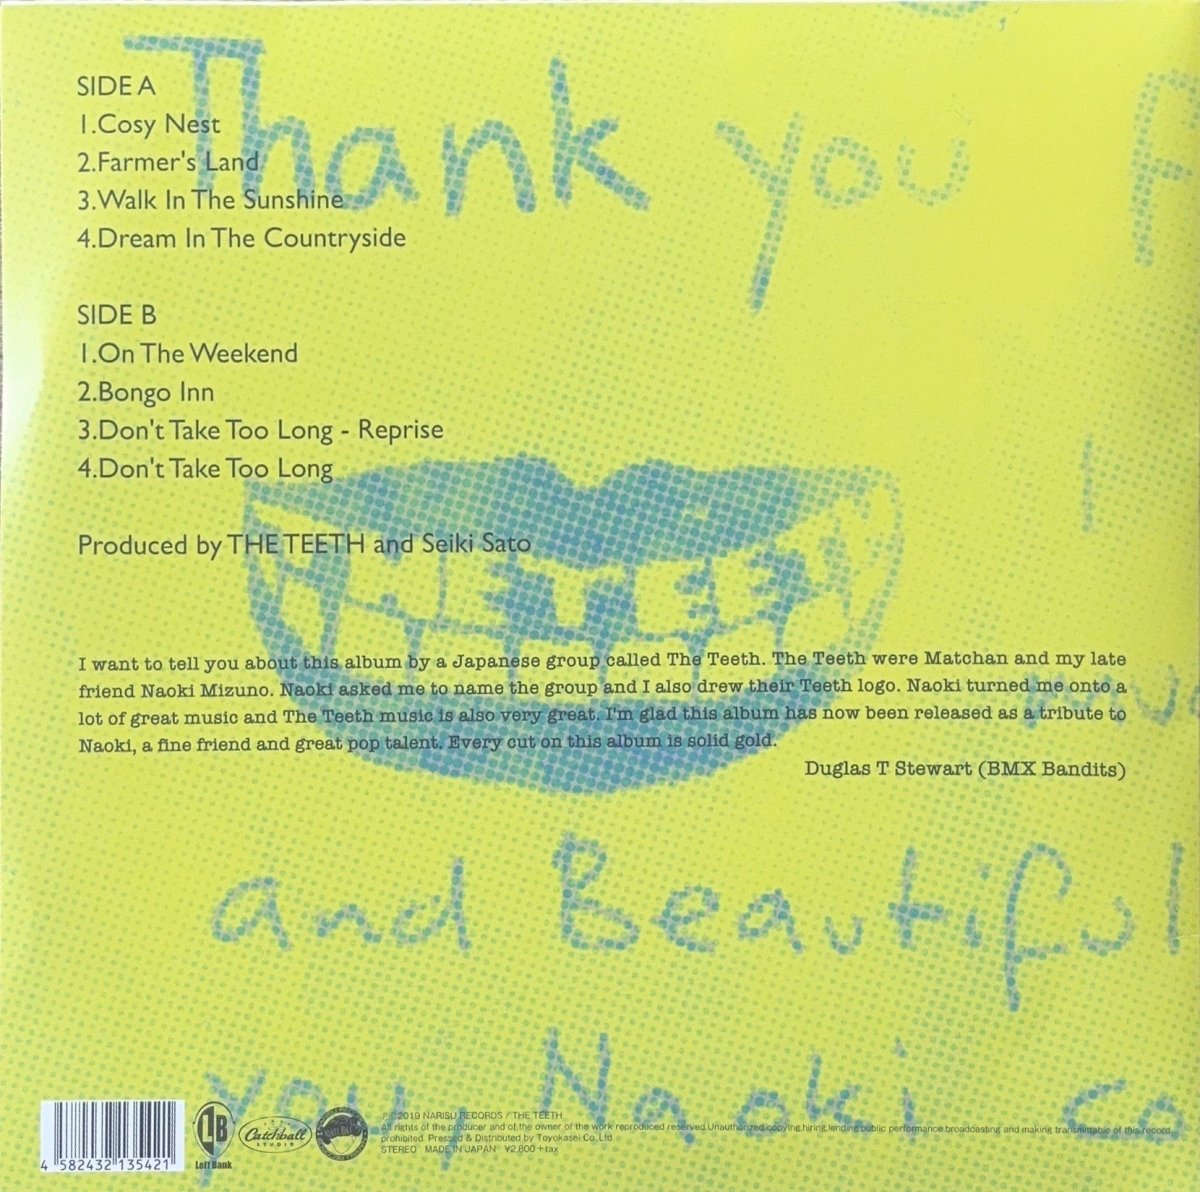 Thank you
SIDE A
1.Cosy Nest
2.Farmer's Land
3.Walk In The Sunshine
4.Dream In The Countryside
SIDE B
1.On The Weekend
2.Bongo Inn
3.Don't Take Too Long - Reprise
4.Don't Take Too Long
Produced by THE TEETH and Seiki Sato
THE TEETH
I want to tell you about this album by a Japanese group called The Teeth. The Teeth were Matchan and my late
friend Naoki Mizuno. Naoki asked me to name the group and I also drew their Teeth logo. Naoki turned me onto a
lot of great music and The Teeth music is also very great. I'm glad this album has now been released as a tribute to
Naoki, a fine friend and great pop talent. Every cut on this album is solid gold.
Duglas T Stewart (BMX Bandits)
and Beautiful
you Naoki co
4 582432 135421
LB
Left Bank
Catchball
STUDIO
℗©2019 NARISU RECORDS / THE TEETH
All rights of the producer and of the owner of the work reproduced reserved.Unauthorized copying,hiring,lending,public performance,broadcasting and making transmittable of this record
prohibited. Pressed & Distributed by Toyokasei Co.,Ltd.
STEREO MADE IN JAPAN ¥2,800+tax